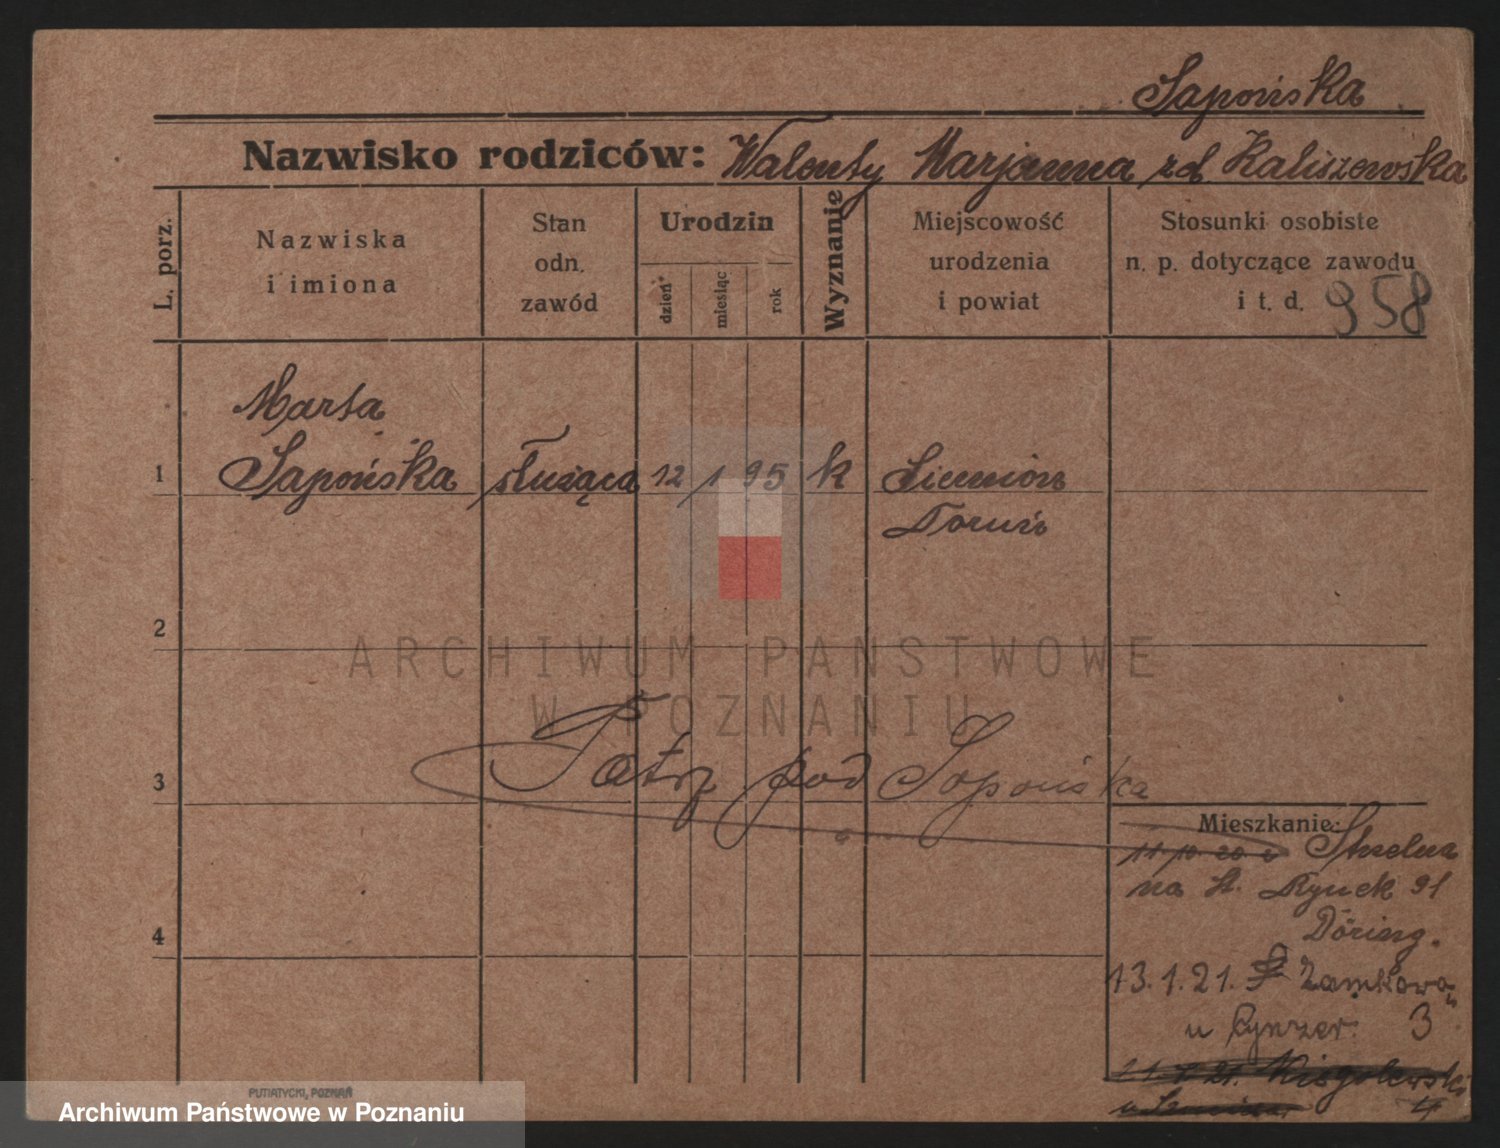 Sapońska
Nazwisko rodziców: Walenty Marjanna zd. Kaliszewska
L. porz.
Nazwiska
i imiona
Stan
odn.
zawód
Urodzin
dzień
miesiąc
rok
Wyznanie
Miejscowość
urodzenia
i powiat
Stosunki osobiste
n. p. dotyczące zawodu
i t. d. 958
Marta
1 Sapońska służąca 12/1 95 k
Toruń
2
3 Patrz pod Sapońska
4
Mieszkanie:
11/10 20 Strzelno
na St. Rynek 91
Döring.
13.1.21. Zamkowa
u 3
21
4
PUTIATYCKI, POZNAŃ
ARCHIWUM PAŃSTWOWE
W POZNANIU
Archiwum Państwowe w Poznaniu